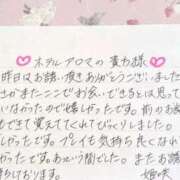 ホテルアロマの貴方様
昨日はお誘い頂きありがとうございました
さかまたここでお会いできるとは思って
いなかったので嬉しかったです。前の
もできて覚えててくれてびっくりしました。
しかったです。プレイも気持ち良くなれ
しかったです。あっという間でした。またお誘
待ちしております。
姫咲